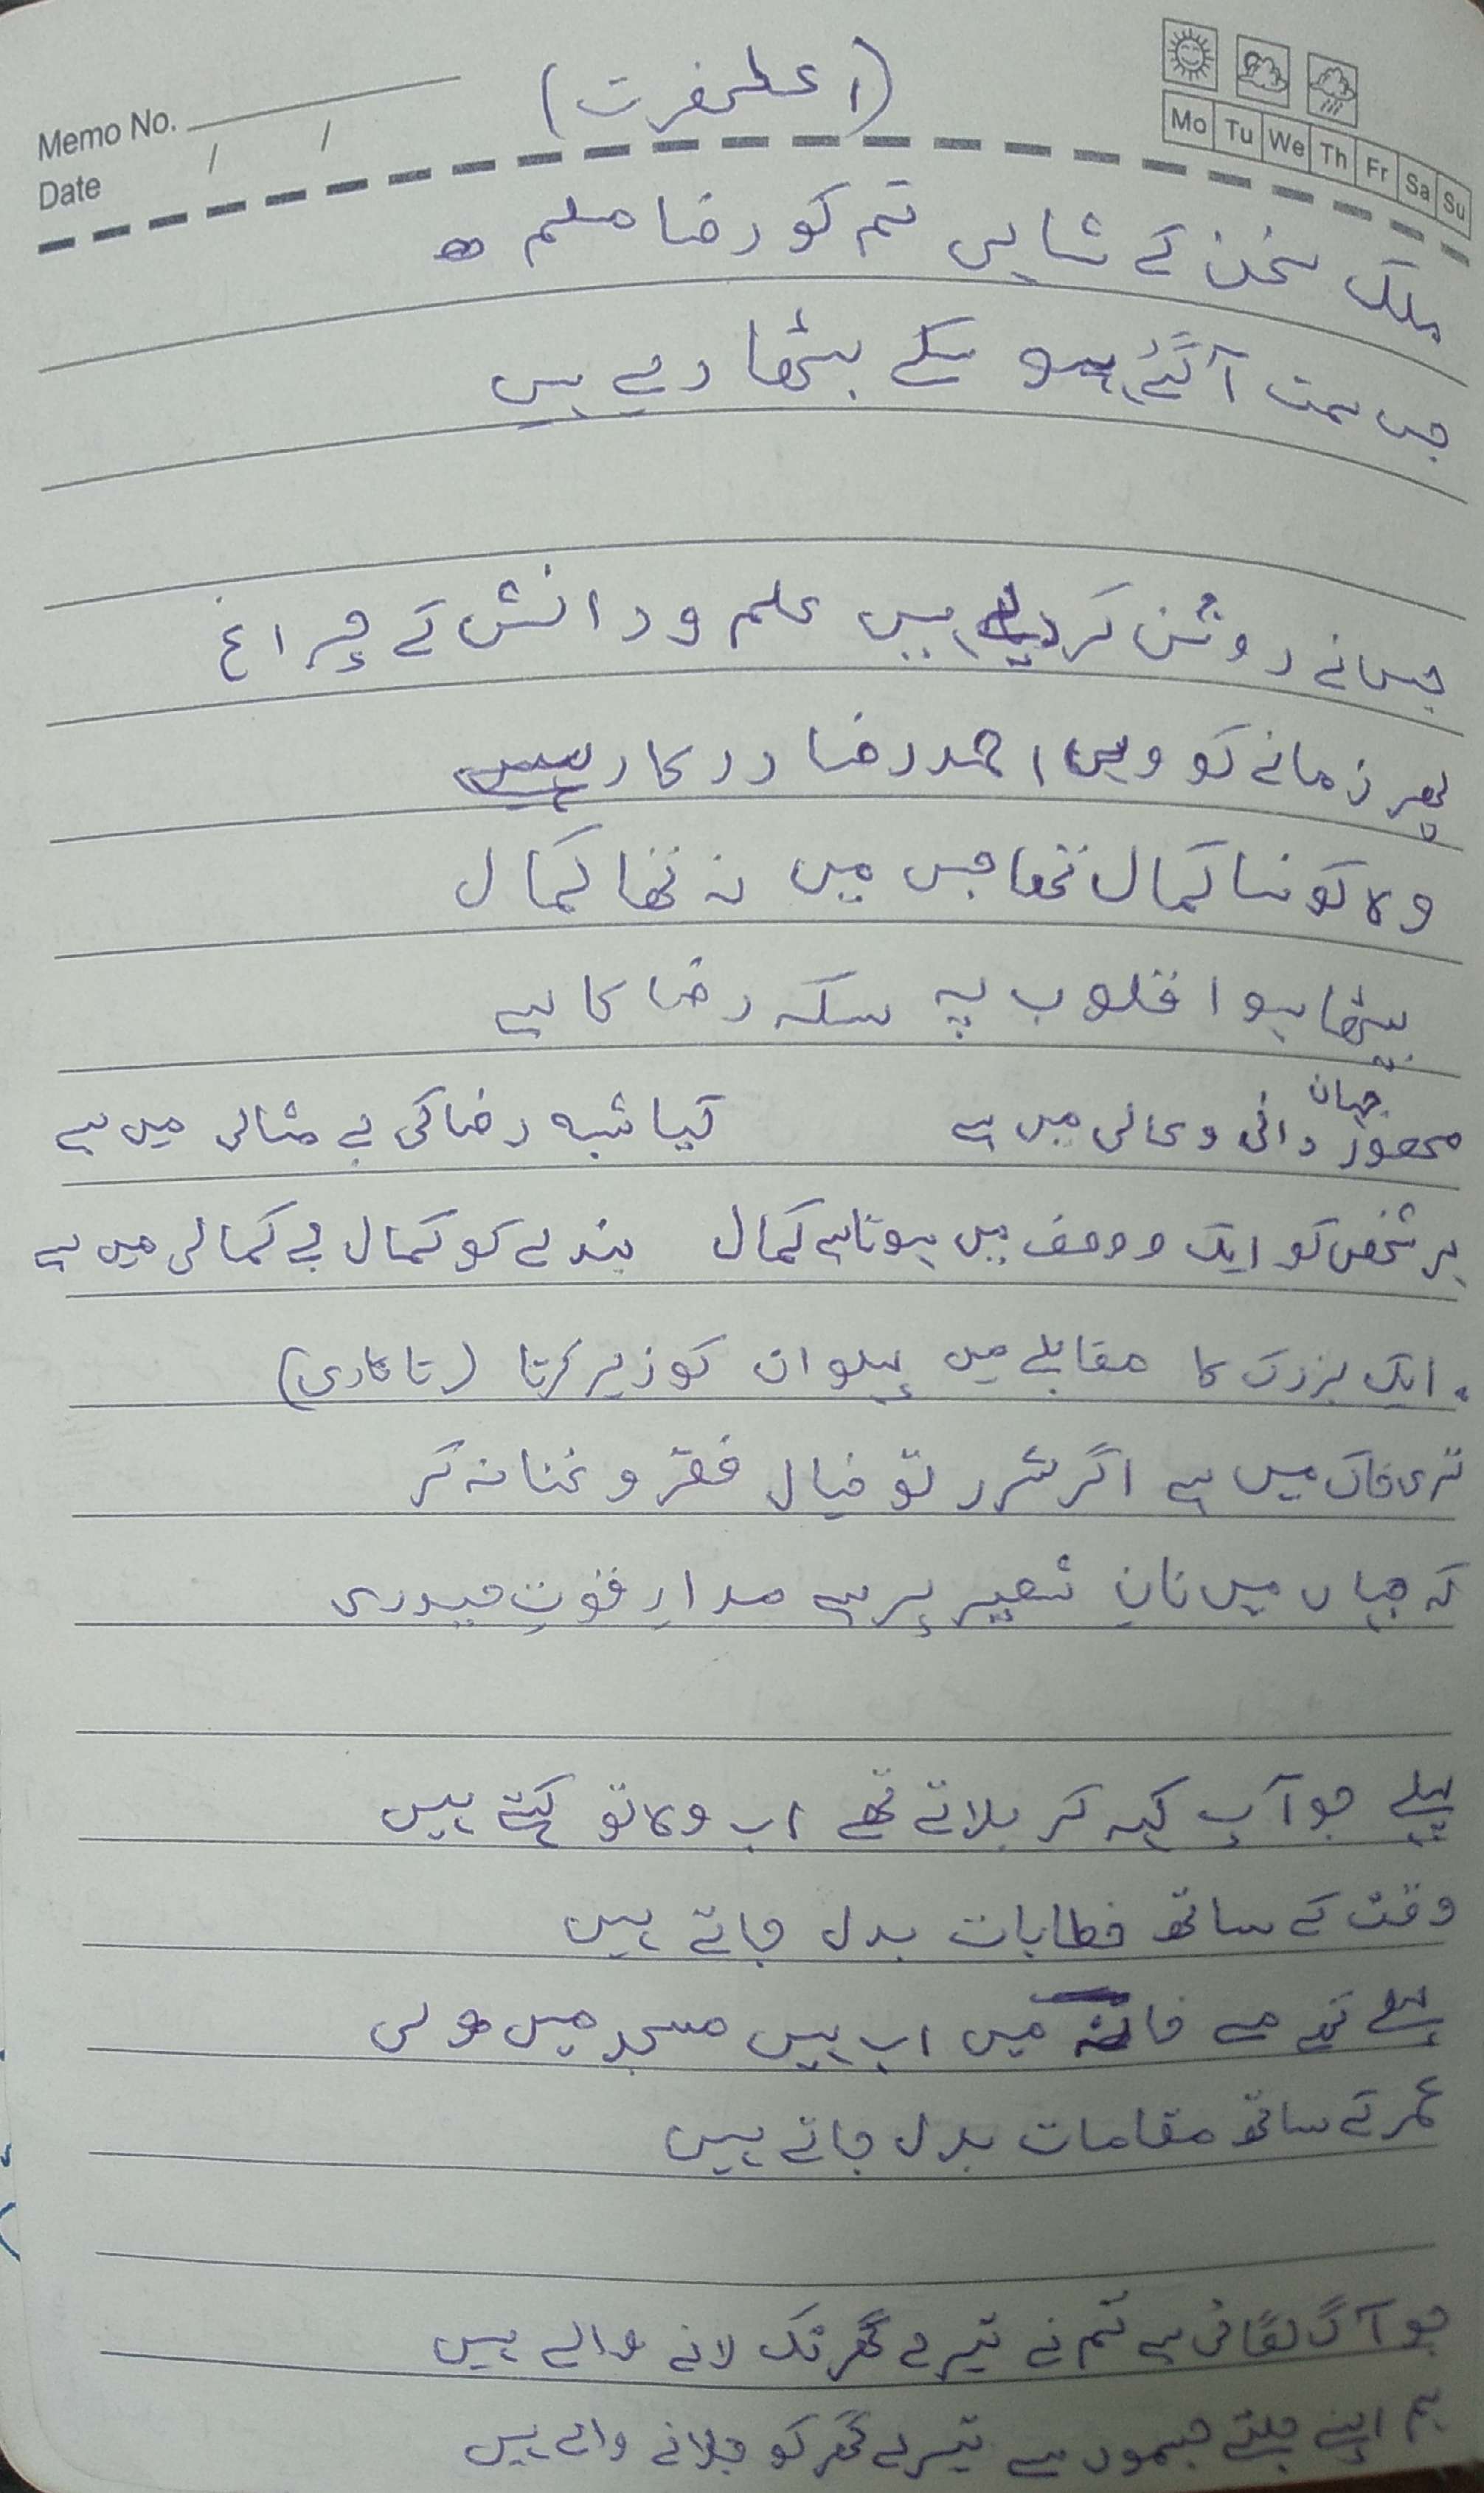 Memo No.
Date / /
Mo Tu We Th Fr Sa Su
(اعلحضرت)
ملک سخن کے شاہی تم کو رضا مسلم
جس سمت آگئے ہو سکے بٹھا دیے ہیں
جس نے روشن کر دیے ہیں علم و دانش کے چراغ
پھر زمانے کو وہی احمد رضا درکار ہے
وہ کونسا کمال تھا جس میں نہ تھا کمال
بیٹھا ہوا قلوب پہ سکہ رضا کا ہے
جہان دانی و عالی میں ہے کیا شبہ رضا کی بے مثالی میں ہے
ہر شخص کو ایک وصف میں ہوتا ہے کمال بندے کو کمال بے کمالی میں ہے
. ایک بزرگ کا مقابلے میں پہلوان کو زیر کرتا
تری خاک میں ہے اگر شرر تو خیال فقر و غنا نہ کر
کہ جہاں میں نانِ شعیر پر ہے مدارِ قوتِ حیدری
پہلے جو آپ کہہ کر بلاتے تھے اب وہ تو کہتے ہیں
وقت کے ساتھ خطابات بدل جاتے ہیں
پہلے تھے مے خانہ میں اب ہیں مسجد میں ولی
عمر کے ساتھ مقامات بدل جاتے ہیں
جو آگ لگائی ہے تم نے تیرے گھر تک لانے والے ہیں
ہم اپنے جلتے جسموں سے تیرے گھر کو جلانے والے ہیں